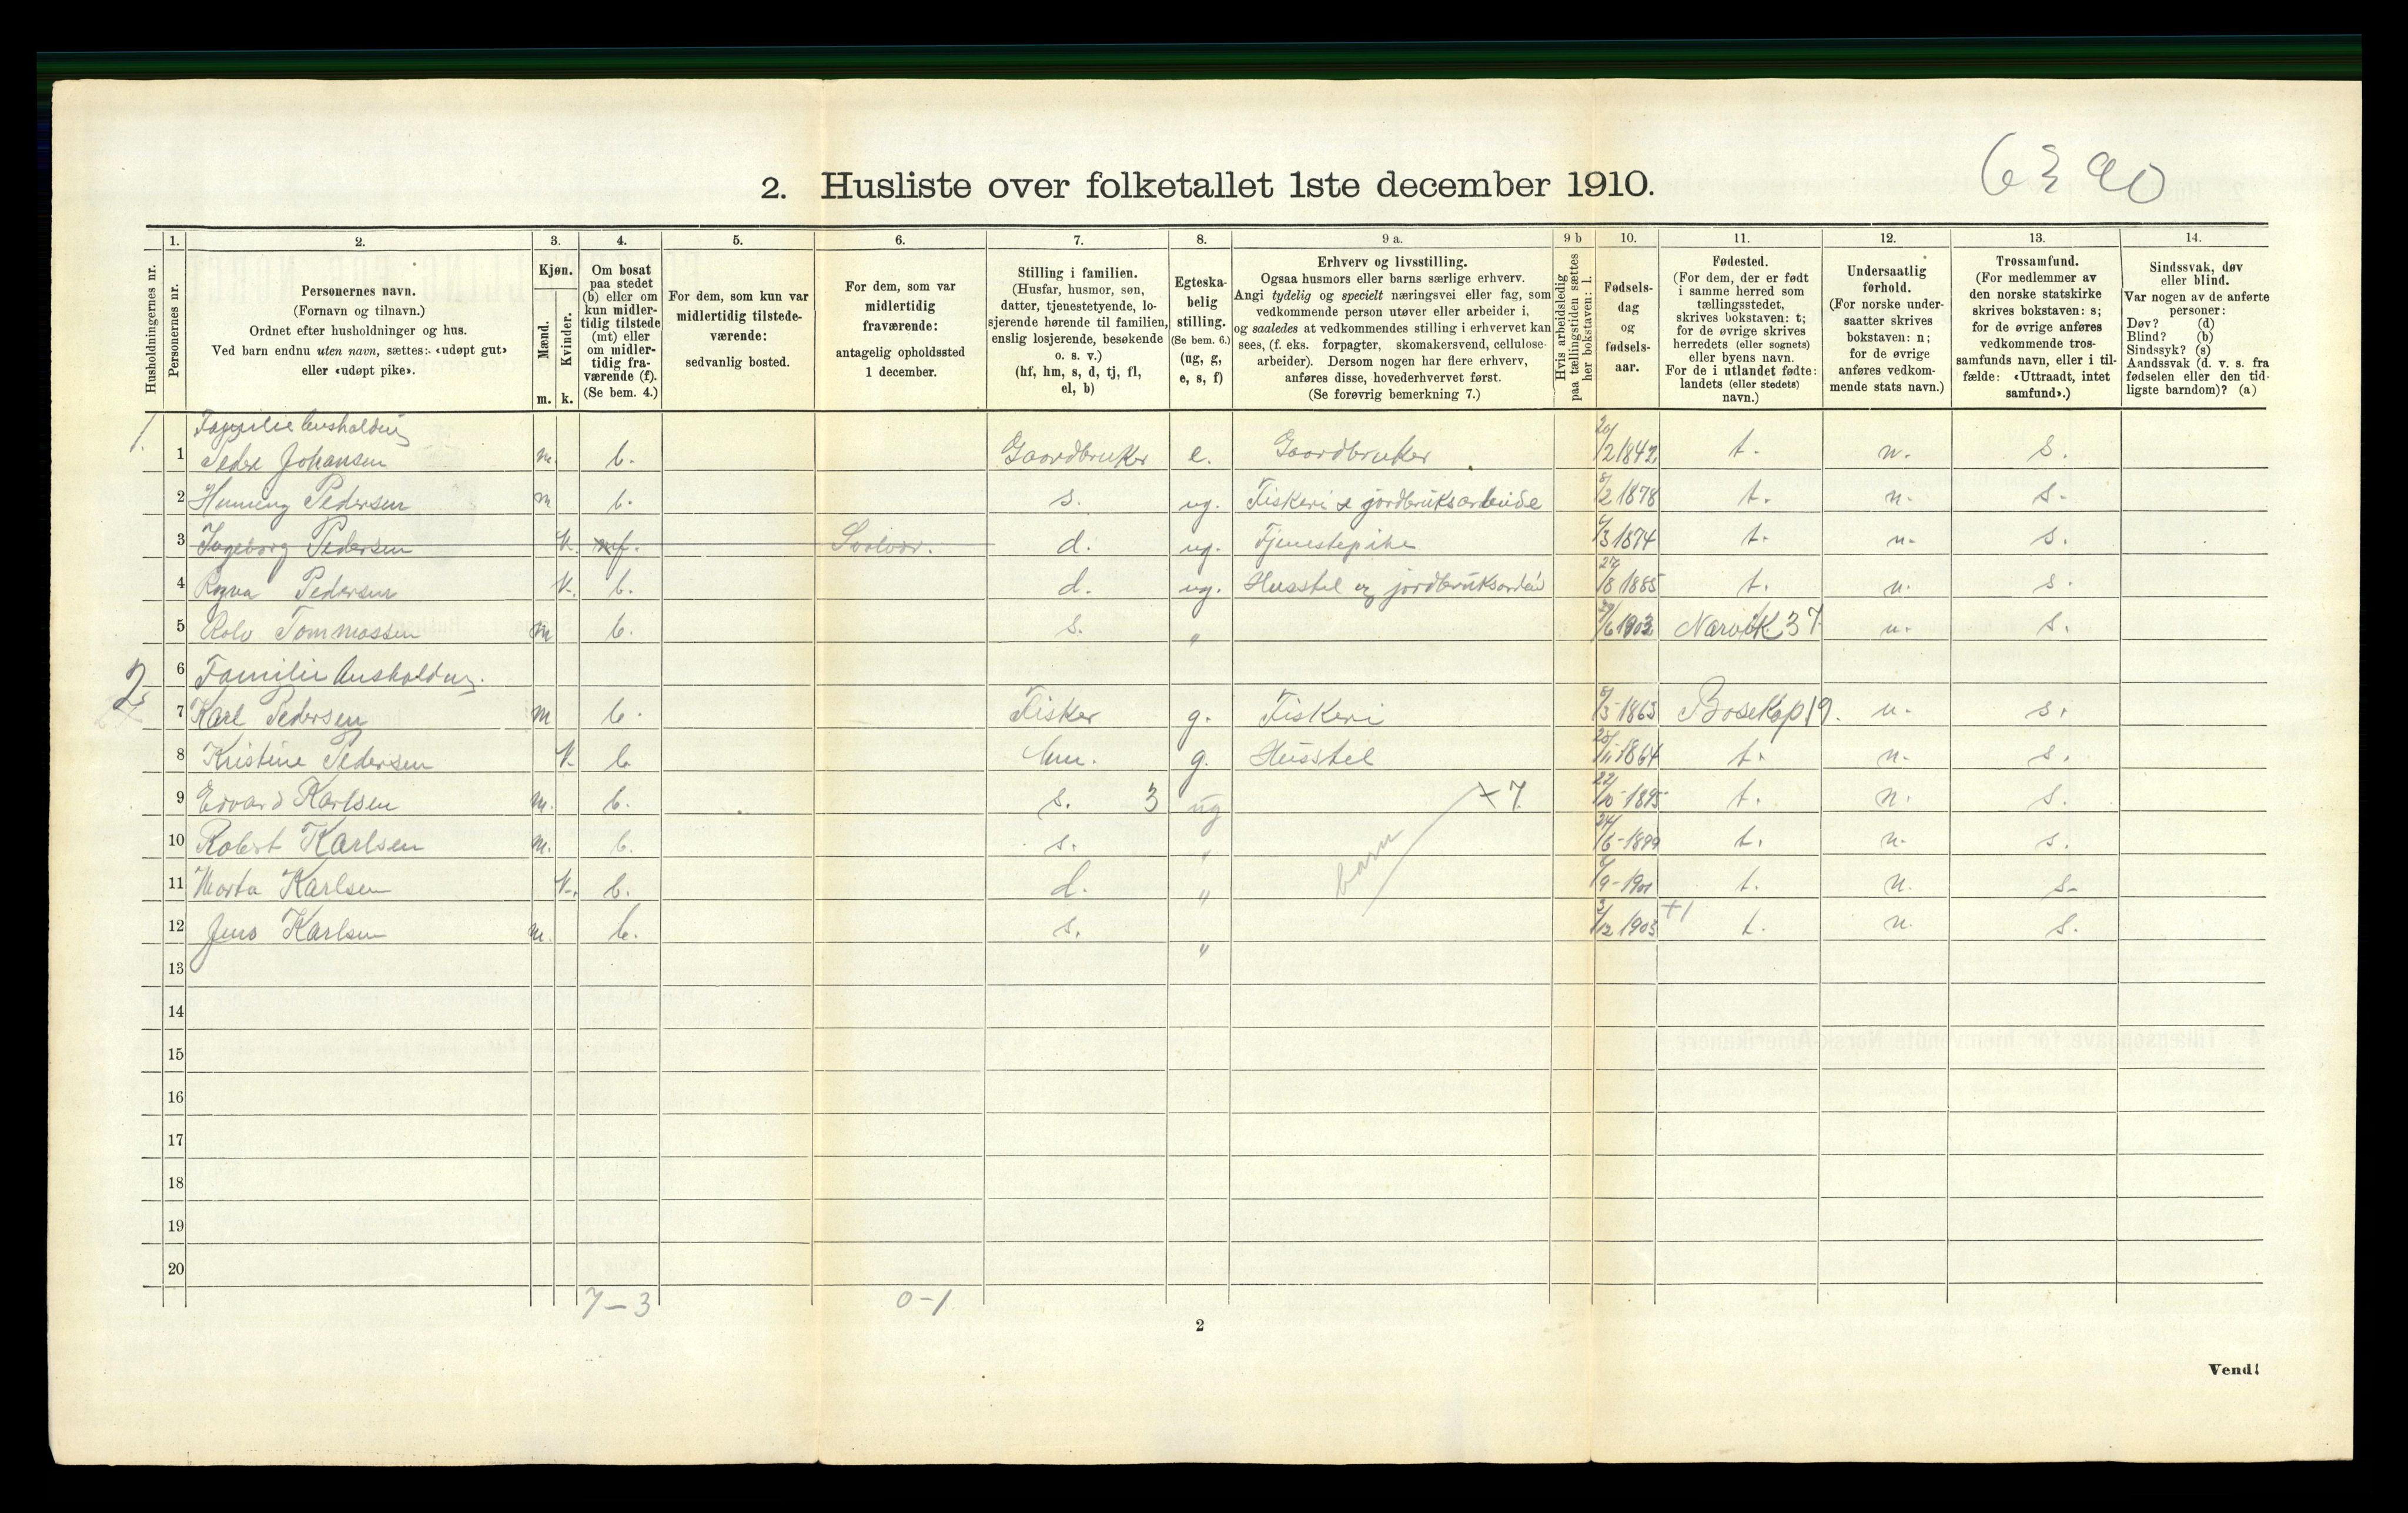 6390
2. Husliste over folketallet 1ste december 1910.
1. 2. 3. 4. 5. 6. 7. 8. 9 a. 9 b 10. 11. 12. 13. 14.
Husholdningernes nr.
Personernes nr.
Personernes navn.
(Fornavn og tilnavn.)
Ordnet efter husholdninger og hus.
Ved barn endnu uten navn, sættes: «udøpt gut»
eller «udøpt pike».
Kjøn.
Mænd.
Kvinder.
m. k.
Om bosat
paa stedet
(b) eller om
kun midler-
tidig tilstede
(mt) eller
om midler-
tidig fra-
værende (f).
(Se bem. 4.)
For dem, som kun var
midlertidig tilstede-
værende:
sedvanlig bosted.
For dem, som var
midlertidig
fraværende:
antagelig opholdssted
1 december.
Stilling i familien.
(Husfar, husmor, søn,
datter, tjenestetyende, lo-
sjerende hørende til familien,
enslig losjerende, besøkende
o. s. v.)
(hf, hm, s, d, tj, fl,
el, b)
Egteska-
belig
stilling.
(Se bem. 6.)
(ug, g,
e, s, f)
Erhverv og livsstilling.
Ogsaa husmors eller barns særlige erhverv.
Angi tydelig og specielt næringsvei eller fag, som
vedkommende person utøver eller arbeider i,
og saaledes at vedkommendes stilling i erhvervet kan
sees, (f. eks. forpagter, skomakersvend, cellulose-
arbeider). Dersom nogen har flere erhverv,
anføres disse, hovederhvervet først.
(Se forøvrig bemerkning 7.)
Hvis arbeidsledig
paa tællingstiden sættes
her bokstaven: l.
Fødsels-
dag
og
fødsels-
aar.
Fødested.
(For dem, der er født
i samme herred som
tællingsstedet,
skrives bokstaven: t;
for de øvrige skrives
herredets (eller sognets)
eller byens navn.
For de i utlandet fødte:
landets (eller stedets)
navn.)
Undersaatlig
forhold.
(For norske under-
saatter skrives
bokstaven: n;
for de øvrige
anføres vedkom-
mende stats navn.)
Trossamfund.
(For medlemmer av
den norske statskirke
skrives bokstaven: s;
for de øvrige anføres
vedkommende tros-
samfunds navn, eller i til-
fælde: «Uttraadt, intet
samfund».)
Sindssvak, døv
eller blind.
Var nogen av de anførte
personer:
Døv? (d)
Blind? (b)
Sindssyk? (s)
Aandssvak (d. v. s. fra
fødselen eller den tid-
ligste barndom)? (a)
1. Familie husholdning
1 Peder Johansen m. b. Gaardbruker e. Gaardbruker 20/2 1842 t. n. s.
2 Henning Pedersen m b. s. ug. Fiskeri & jordbruksarbeide 8/2 1878 t. n. s.
3 Ingeborg Pedersen k. f. Svolvær. d. ug. Tjenestepike 6/3 1874 t. n. s.
4 Ragna Pedersen k. b. d. ug. Husstel og jordbruksarbeid 27/8 1885 t. n. s.
5 Rolv Tommassen m b. s. " 29/6 1903 Narvik 37 n. s.
2 6 Familie husholdning.
7 Karl Pedersen m b. Fisker g. Fiskeri 8/5 1863 Bosekop 19. n. s.
8 Kristine Pedersen k b hm. g. Husstel 28/11 1864 t. n. s.
9 Edvard Karlsen m. b. s. 3 ug x 7 22/10 - 1895 t. n. s.
10 Robert Karlsen m. b. s. " barn 24/6 - 1899 t. n. s.
11 Marta Karlsen k. b. d. " 6/9 - 1901 t. n. s.
12 Jens Karlsen m. b. s. " 3/12 1903 +1 t. n. s.
13
14
15
16
17
18
19
20
7-3 0-1
2
Vend!